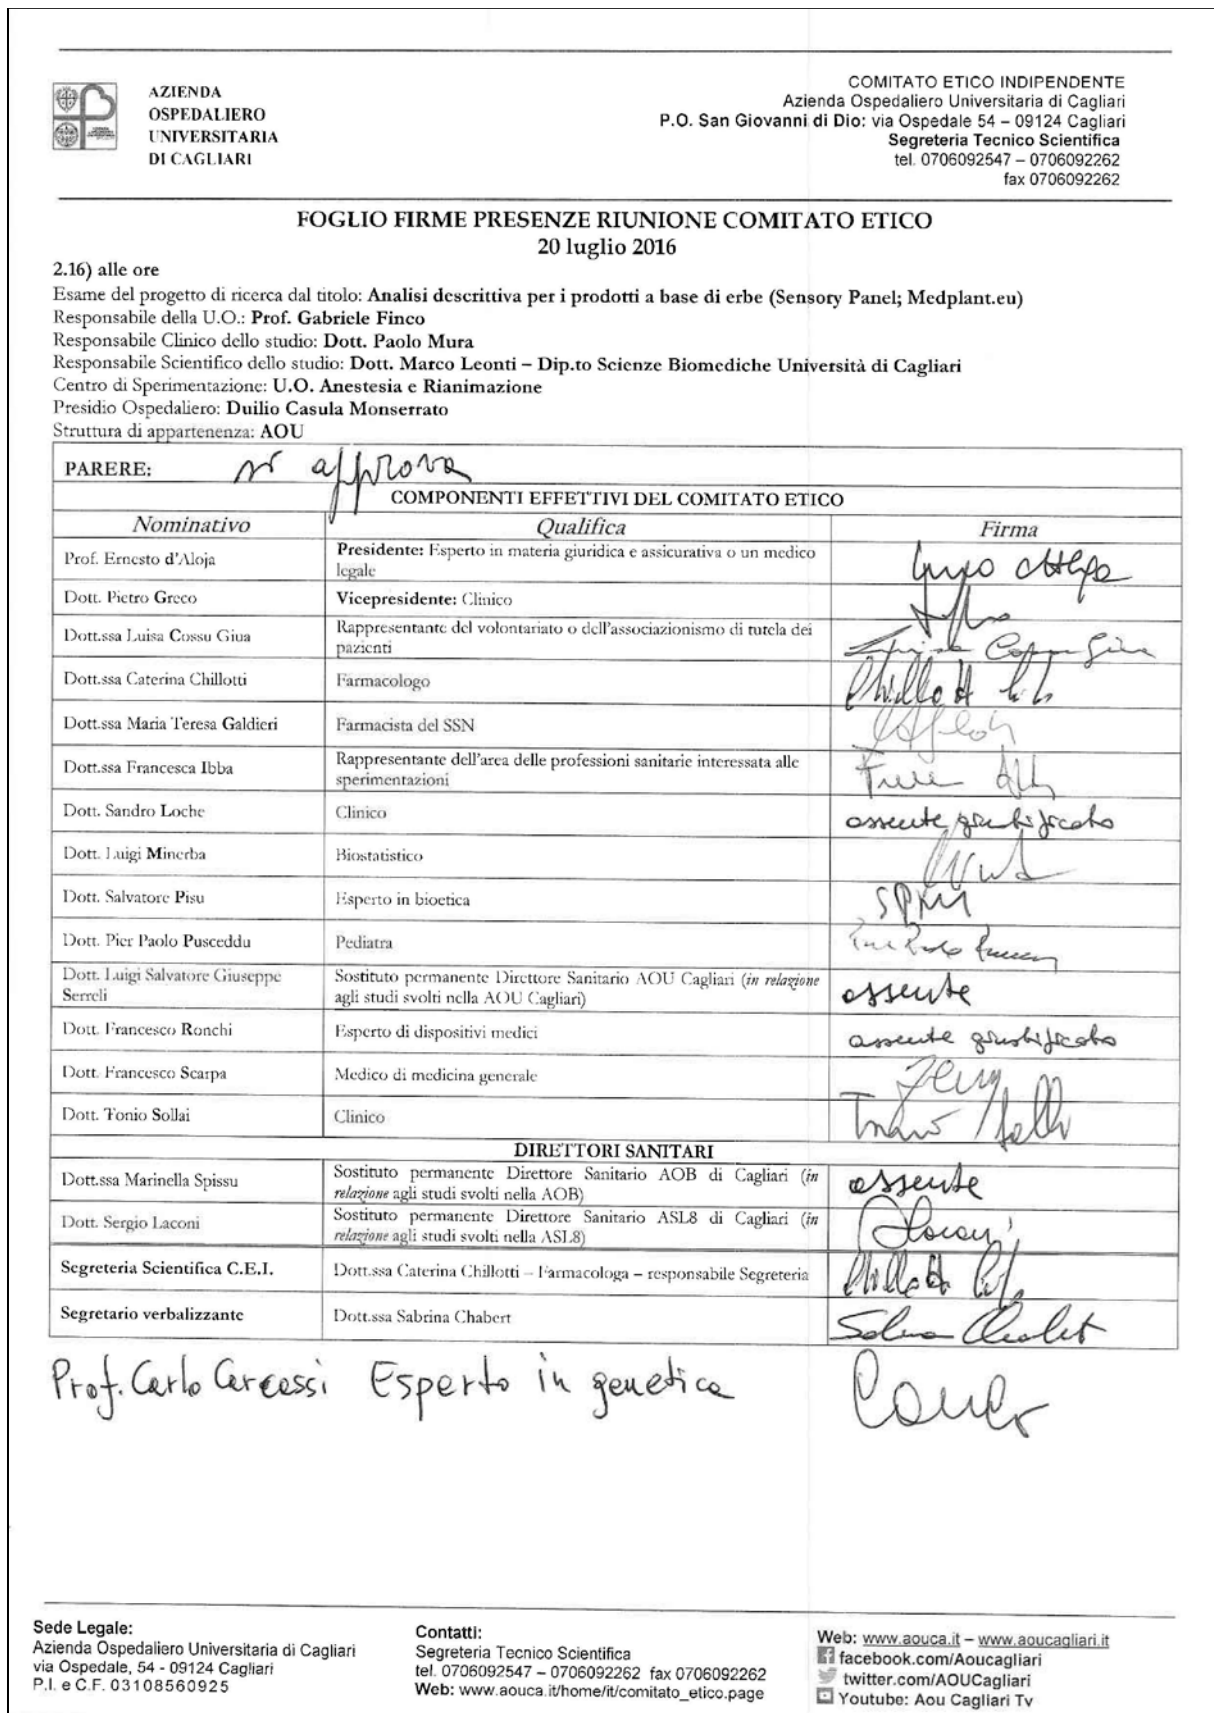 AZIENDA
OSPEDALIERO
UNIVERSITARIA
DI CAGLIARI
COMITATO ETICO INDIPENDENTE
Azienda Ospedaliero Universitaria di Cagliari
P.O. San Giovanni di Dio: via Ospedale 54 – 09124 Cagliari
Segreteria Tecnico Scientifica
tel. 0706092547 – 0706092262
fax 0706092262
FOGLIO FIRME PRESENZE RIUNIONE COMITATO ETICO
20 luglio 2016
2.16) alle ore
Esame del progetto di ricerca dal titolo: Analisi descrittiva per i prodotti a base di erbe (Sensory Panel; Medplant.eu)
Responsabile della U.O.: Prof. Gabriele Finco
Responsabile Clinico dello studio: Dott. Paolo Mura
Responsabile Scientifico dello studio: Dott. Marco Leonti – Dip.to Scienze Biomediche Università di Cagliari
Centro di Sperimentazione: U.O. Anestesia e Rianimazione
Presidio Ospedaliero: Duilio Casula Monserrato
Struttura di appartenenza: AOU
PARERE: si approva
COMPONENTI EFFETTIVI DEL COMITATO ETICO
Nominativo Qualifica Firma
Prof. Ernesto d'Aloja Presidente: Esperto in materia giuridica e assicurativa o un medico
legale
Dott. Pietro Greco Vicepresidente: Clinico
Dott.ssa Luisa Cossu Giua Rappresentante del volontariato o dell'associazionismo di tutela dei
pazienti
Dott.ssa Caterina Chillotti Farmacologo
Dott.ssa Maria Teresa Galdieri Farmacista del SSN
Dott.ssa Francesca Ibba Rappresentante dell'area delle professioni sanitarie interessata alle
sperimentazioni
Dott. Sandro Loche Clinico assente giustificato
Dott. Luigi Minerba Biostatistico
Dott. Salvatore Pisu Esperto in bioetica
Dott. Pier Paolo Pusceddu Pediatra
Dott. Luigi Salvatore Giuseppe Sostituto permanente Direttore Sanitario AOU Cagliari (in relazione
Serreli agli studi svolti nella AOU Cagliari) assente
Dott. Francesco Ronchi Esperto di dispositivi medici assente giustificato
Dott. Francesco Scarpa Medico di medicina generale
Dott. Tonio Sollai Clinico
DIRETTORI SANITARI
Dott.ssa Marinella Spissu Sostituto permanente Direttore Sanitario AOB di Cagliari (in
relazione agli studi svolti nella AOB) assente
Dott. Sergio Laconi Sostituto permanente Direttore Sanitario ASL8 di Cagliari (in
relazione agli studi svolti nella ASL8)
Segreteria Scientifica C.E.I. Dott.ssa Caterina Chillotti – Farmacologa – responsabile Segreteria
Segretario verbalizzante Dott.ssa Sabrina Chabert
Prof. Carlo Carcassi Esperto in genetica
Sede Legale:
Azienda Ospedaliero Universitaria di Cagliari
via Ospedale, 54 - 09124 Cagliari
P.I. e C.F. 03108560925
Contatti:
Segreteria Tecnico Scientifica
tel. 0706092547 – 0706092262 fax 0706092262
Web: www.aouca.it/home/it/comitato_etico.page
Web: www.aouca.it – www.aoucagliari.it
facebook.com/Aoucagliari
twitter.com/AOUCagliari
Youtube: Aou Cagliari Tv